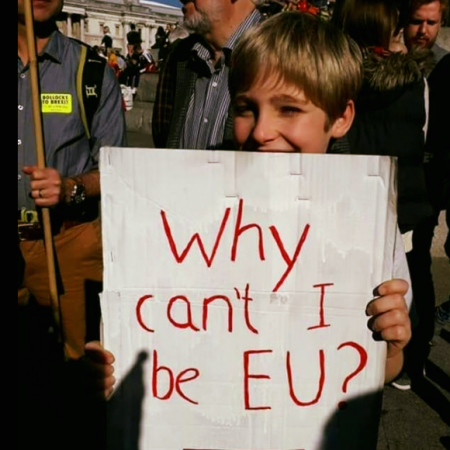 BOLLOCKS
TO BREXIT
Why
can't I
be EU?